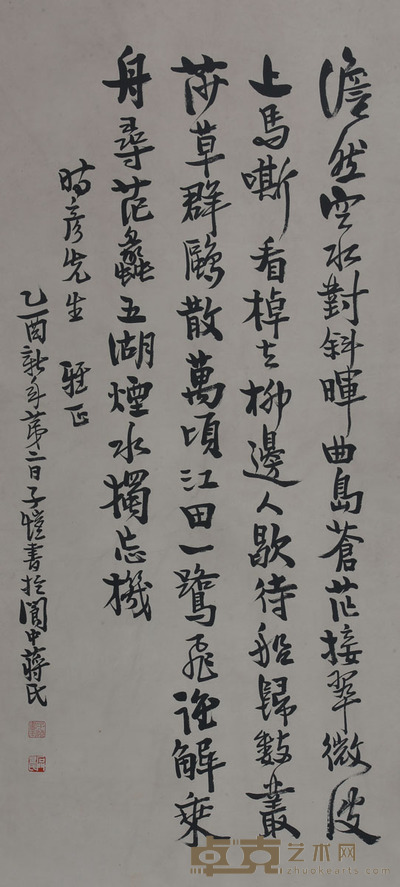 澹然空水對斜暉曲島蒼茫接翠微波
上馬嘶看棹去柳邊人歇待船歸數叢
莎草群鷗散萬頃江田一鷺飛誰解乘
舟尋范蠡五湖煙水獨忘機
時彥先生 雅正
乙酉新年第二日子愷書於閬中蔣氏
卓克艺术网
www.zhuokearts.com